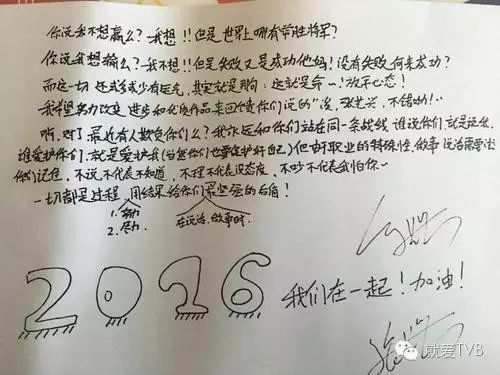 你说我不想赢么？我想！！但是世界上哪有常胜将军？
你说我想输么？我不想！！但是失败又是成功他妈！没有失败何来成功？
而这一切 还或多或少有运气，其实就是狗 这就是命～！放平心态！
我希望努力改变 进步和优质作品来回馈你们说的“没，张艺兴，不错呦！”
啊，对了，最近有人欺负你们么？我永远和你们站在同一条战线 谁说你们，就是说我，
谁爱护你们，就是爱护我（当然你们也要保护好自己）但由于职业的特殊性，做事 说话需要
你们记住，不说不代表不知道，不理不代表没态度，不吵不代表我怕你～
一切都是过程，用结果给你们最坚强的后盾！
1. 努力
2. 尽力
在说话、做事时
2016
我们在一起！加油！
就爱TVB